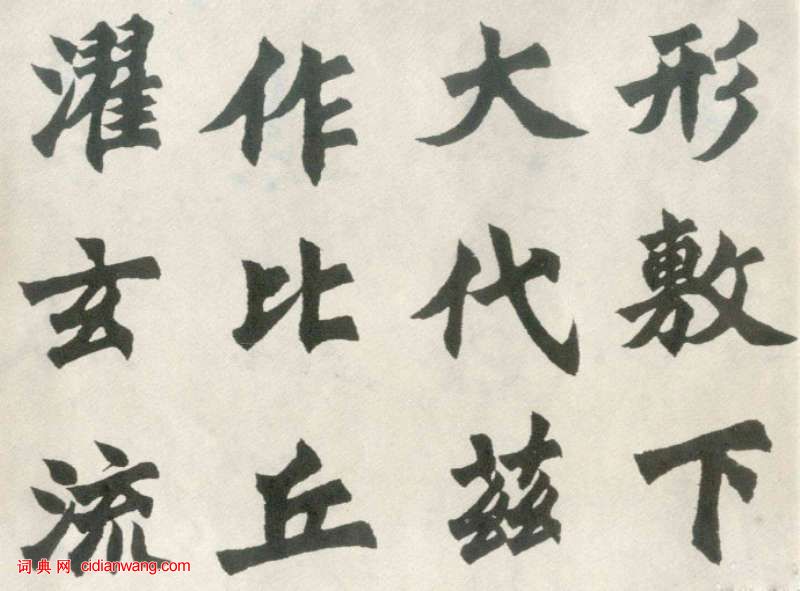 形敷下
大代兹
作比丘
濯玄流
词典网 cidianwang.com